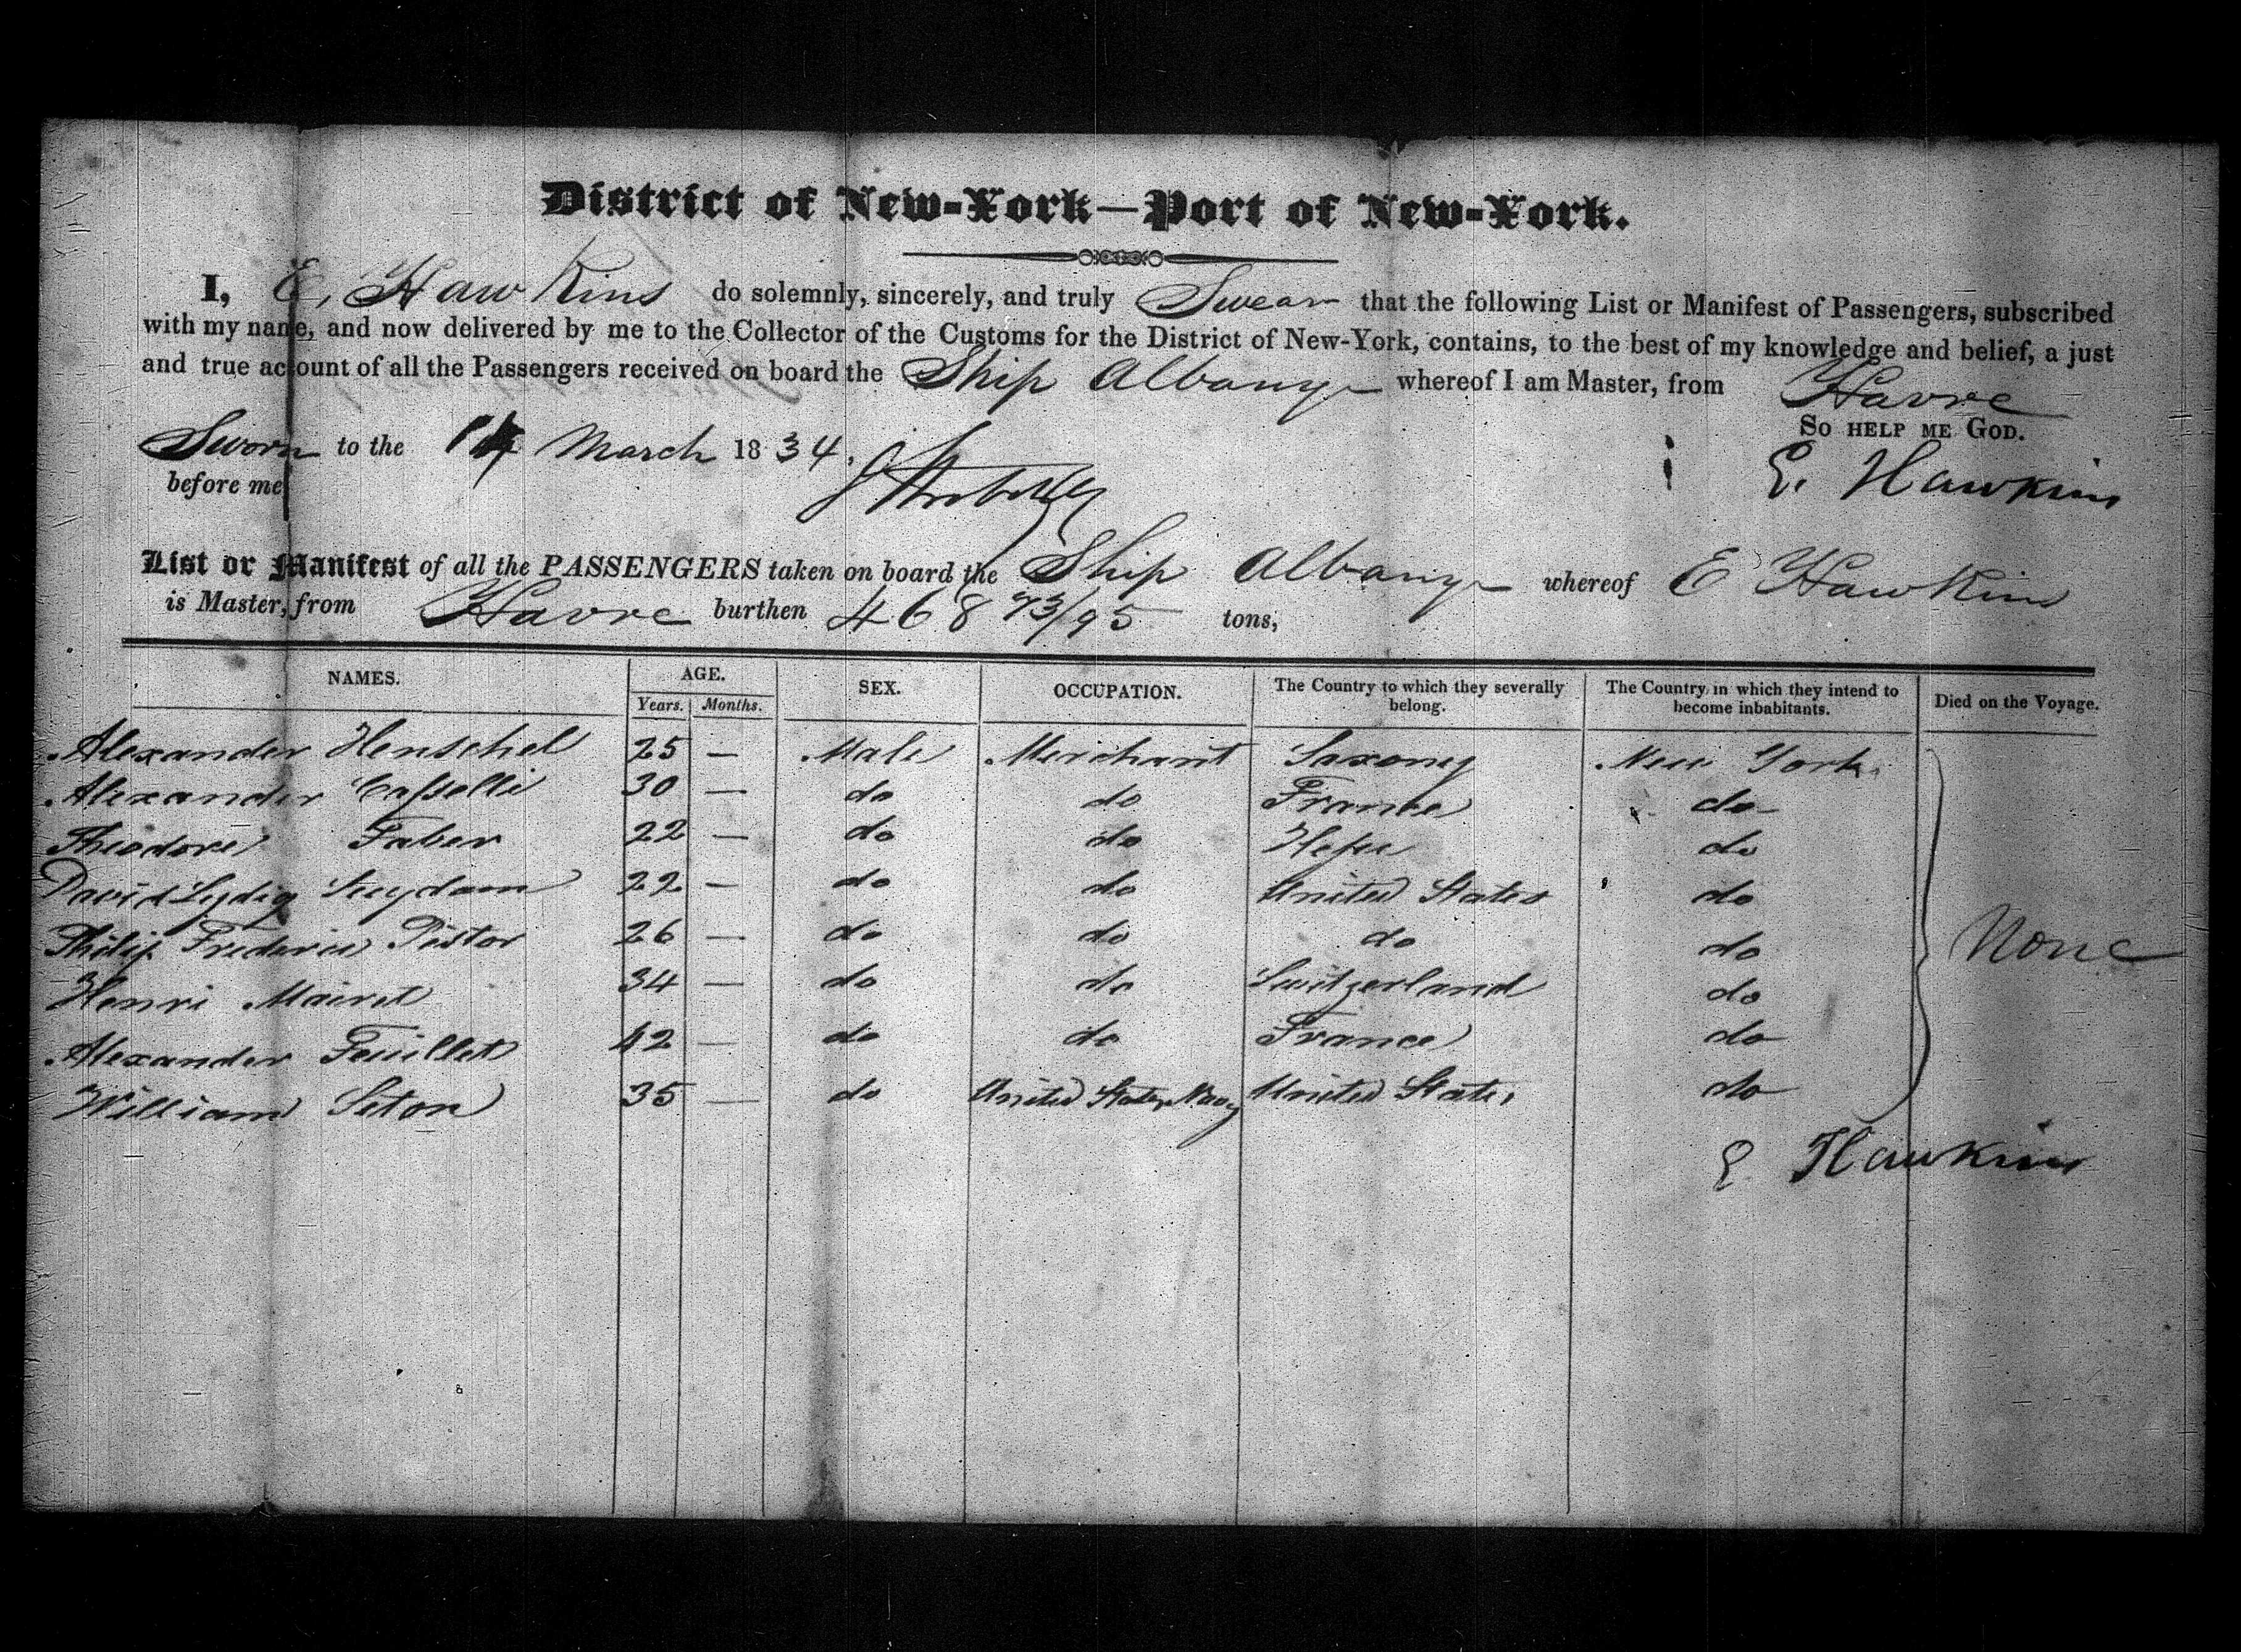 District of New-York—Port of New-York.
I, E. Hawkins do solemnly, sincerely, and truly Swear that the following List or Manifest of Passengers, subscribed
with my name, and now delivered by me to the Collector of the Customs for the District of New-York, contains, to the best of my knowledge and belief, a just
and true account of all the Passengers received on board the Ship Albany whereof I am Master, from Havre
So help me God.
Sworn to the 14 March 1834.
before me
E. Hawkins
List or Manifest of all the PASSENGERS taken on board the Ship Albany whereof E Hawkins
is Master, from Havre burthen 468 73/95 tons,
NAMES. AGE. SEX. OCCUPATION. The Country to which they severally belong. The Country in which they intend to become inhabitants. Died on the Voyage.
Years. Months.
Alexander Henschel 25 — Male Merchant Saxony New York
Alexander Casselli 30 — do do France do
Theodore Faber 22 — do do Hesse do
David Lydig Suydam 22 — do do United States do
Philip Frederic Pistor 26 — do do do do
None
Henri Mairet 34 — do do Switzerland do
Alexander Feuillet 42 — do do France do
William Seton 35 — do United States Navy United States do
E Hawkins